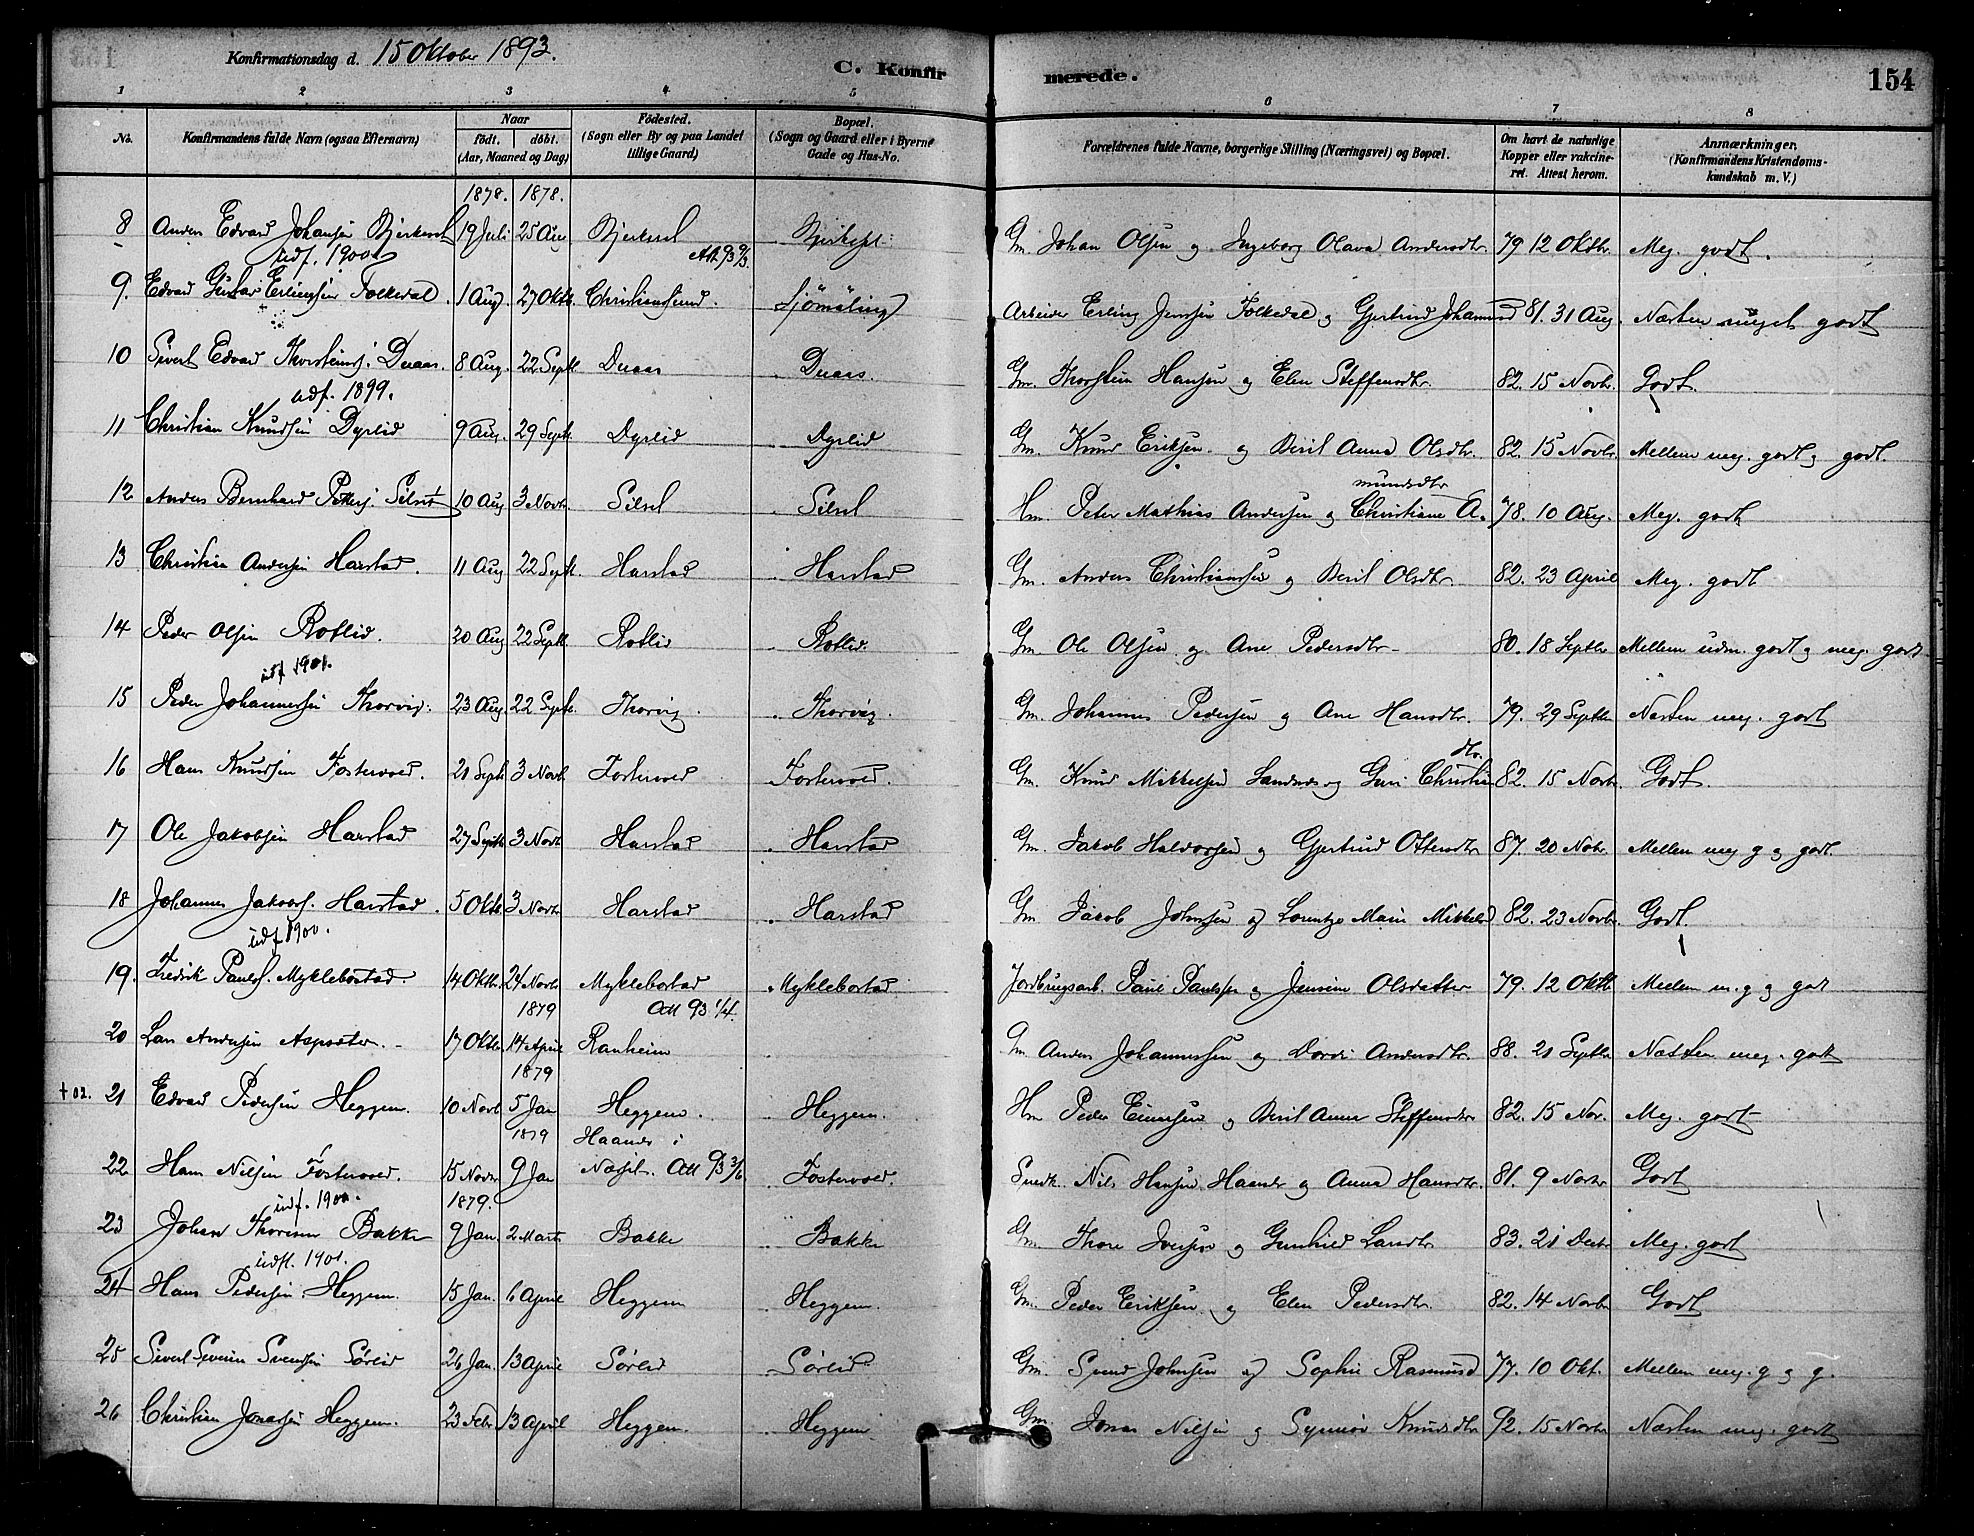 Konfirmationsdag d. 15 Oktober 1893.
C. Konfirmerede.
154
1 2 3 4 5 6 7 8
No. | Konfirmandens fulde Navn (ogsaa Efternavn) | Naar födt. döbt. (Aar, Maaned og Dag) | Födested. (Sogn eller By og paa Landet tillige Gaard) | Bopæl. (Sogn og Gaard eller i Byerne Gade og Hus-No. | Forældrenes fulde Navne, borgerlige Stilling (Næringsvei) og Bopæl. | Om havt de naturlige Kopper eller vakcineret. Attest herom. | Anmærkninger. (Konfirmandens Kristendomskundskab m. V.)
1878. 1878.
8 Anders Edvard Johansen 19 Juli 25 Aug Gm. Johan Olsen og Ingeborg Olava Andersdtr. 79 12 Oktbr. Meg. godt.
udf. 1900
9. Edvard Gustav Erlingsen Folkedal. 1 Aug. 27 Oktb. Christiansund. Sjömæling Arbeider Erling Jenssen Folkedal og Gjertrud Johannesd 81. 31 Aug. Næsten meget godt
10 Sivert Edvard Thorsteins. Duaas. 8 Aug. 22 Septb Duaas Duaas. Gm. Thorstein Hansen og Elen Steffensdtr. 82. 15 Novbr. Godt.
udf. 1899.
11 Christian Knudsen Dyrlid 9 Aug. 29 Septb. Dyrlid Dyrlid Gm. Knud Eriksen og Beril Anna Olsdtr. 82. 15 Novbr. Mellem meg. godt og godt.
12 Anders Bernhard Peters. Silset 10 Aug 3 Novbr. Silset Silset Hm. Peter Mathias Andersen og Christiane A. mundsdtr 78. 10 Aug. Meg. godt
13 Christian Andersen Harstad. 11 Aug 22 Septb. Harstad Harstad Gm. Anders Christiansen og Beril Olsdtr. 82. 23 April Meg. godt
14 Peder Olsen Rotlid. 20 Aug 22 Septb. Rotlid Rotlid. Gm. Ole Olsen og Ane Pedersdtr 80. 18 Septbr Mellem udm. godt og meg. godt
udf 1901.
15 Peder Johannessen Thorvig. 23 Aug. 22 Septb. Thorvig. Thorvig. Gm. Johannes Pedersen og Ane Hansdtr. 79. 29 Septbr Næsten meg. godt
16 Hans Knudsen Fostervold. 21 Septb 3 Novb. Fostervold Fostervold. Gm. Knud Mikkelsen Sandnes og Guri Christiandtr. 82. 15 Novbr. Godt.
17 Ole Jakobsen Harstad 27 Septb 3 Novb Harstad Harstad Gm. Jakob Halvorsen og Gjertrud Ottersdtr 87. 20 Nobr. Mellem meg g og godt.
18 Johannes Jakobs. Harstad. 5 Oktb 3 Novbr Harstad Harstad Gm. Jakob Johnsen og Lorentze Marie Mikkelsd 82. 23 Novbr. Godt.
udf 1900.
19. Fredrik Pauls. Myklebostad. 14 Oktbr. 24 Novbr Myklebostad Myklebostad Jordbrugsarb. Paul Paulssen og Jensine Olsdatter 79. 12 Oktb Mellem m. g og godt
1879 Att 93 1/4.
20 Lars Andersen Aspsæter. 17 Oktbr. 14 April Ranheim Gm Anders Johannessen og Dordi Andersdtr. 88. 21 Septbr. Næsten meg. godt
1879
† 02. 21 Edvard Pedersen Heggem. 10 Novb 5 Jan Heggem. Heggem. Hm Peder Einersen og Beril Anna Steffensdtr 82. 15 Nov. Meg. godt
1879 Haanes i
22 Hans Nilsen Fostervold. 15 Novbr 9 Jan Næsset. Att 93 3/6 Fostervold. Snedk. Nils Hansen Haanes og Anna Hansdtr. 81. 9 Novbr Godt
udf. 1900. 1879.
23 Johan Thoresen Bakke 9 Jan. 2 Marts Bakke Bakke Gm. Thore Iversen og Gunhild Larsdtr 83. 21 Decbr Meg. godt
udfl. 1901.
24 Hans Pedersen Heggem. 15 Jan. 6 April Heggem Heggem. Gm. Peder Eriksen og Elen Pedersdtr. 82. 14 Novbr Godt
25 Sivert Severin Svendsen Sörlid 26 Jan. 13 April Sörlid Sörlid Gm. Svend Johnsen og Sophie Rasmusd 77. 10 Okt. Mellem meg. g og g.
26 Christian Jonassen Heggem. 23 Febr. 13 April Heggem. Heggem Gm. Jonas Nilsen og Synnöv Knudsdtr 92. 15 Novbr Næsten meg. godt